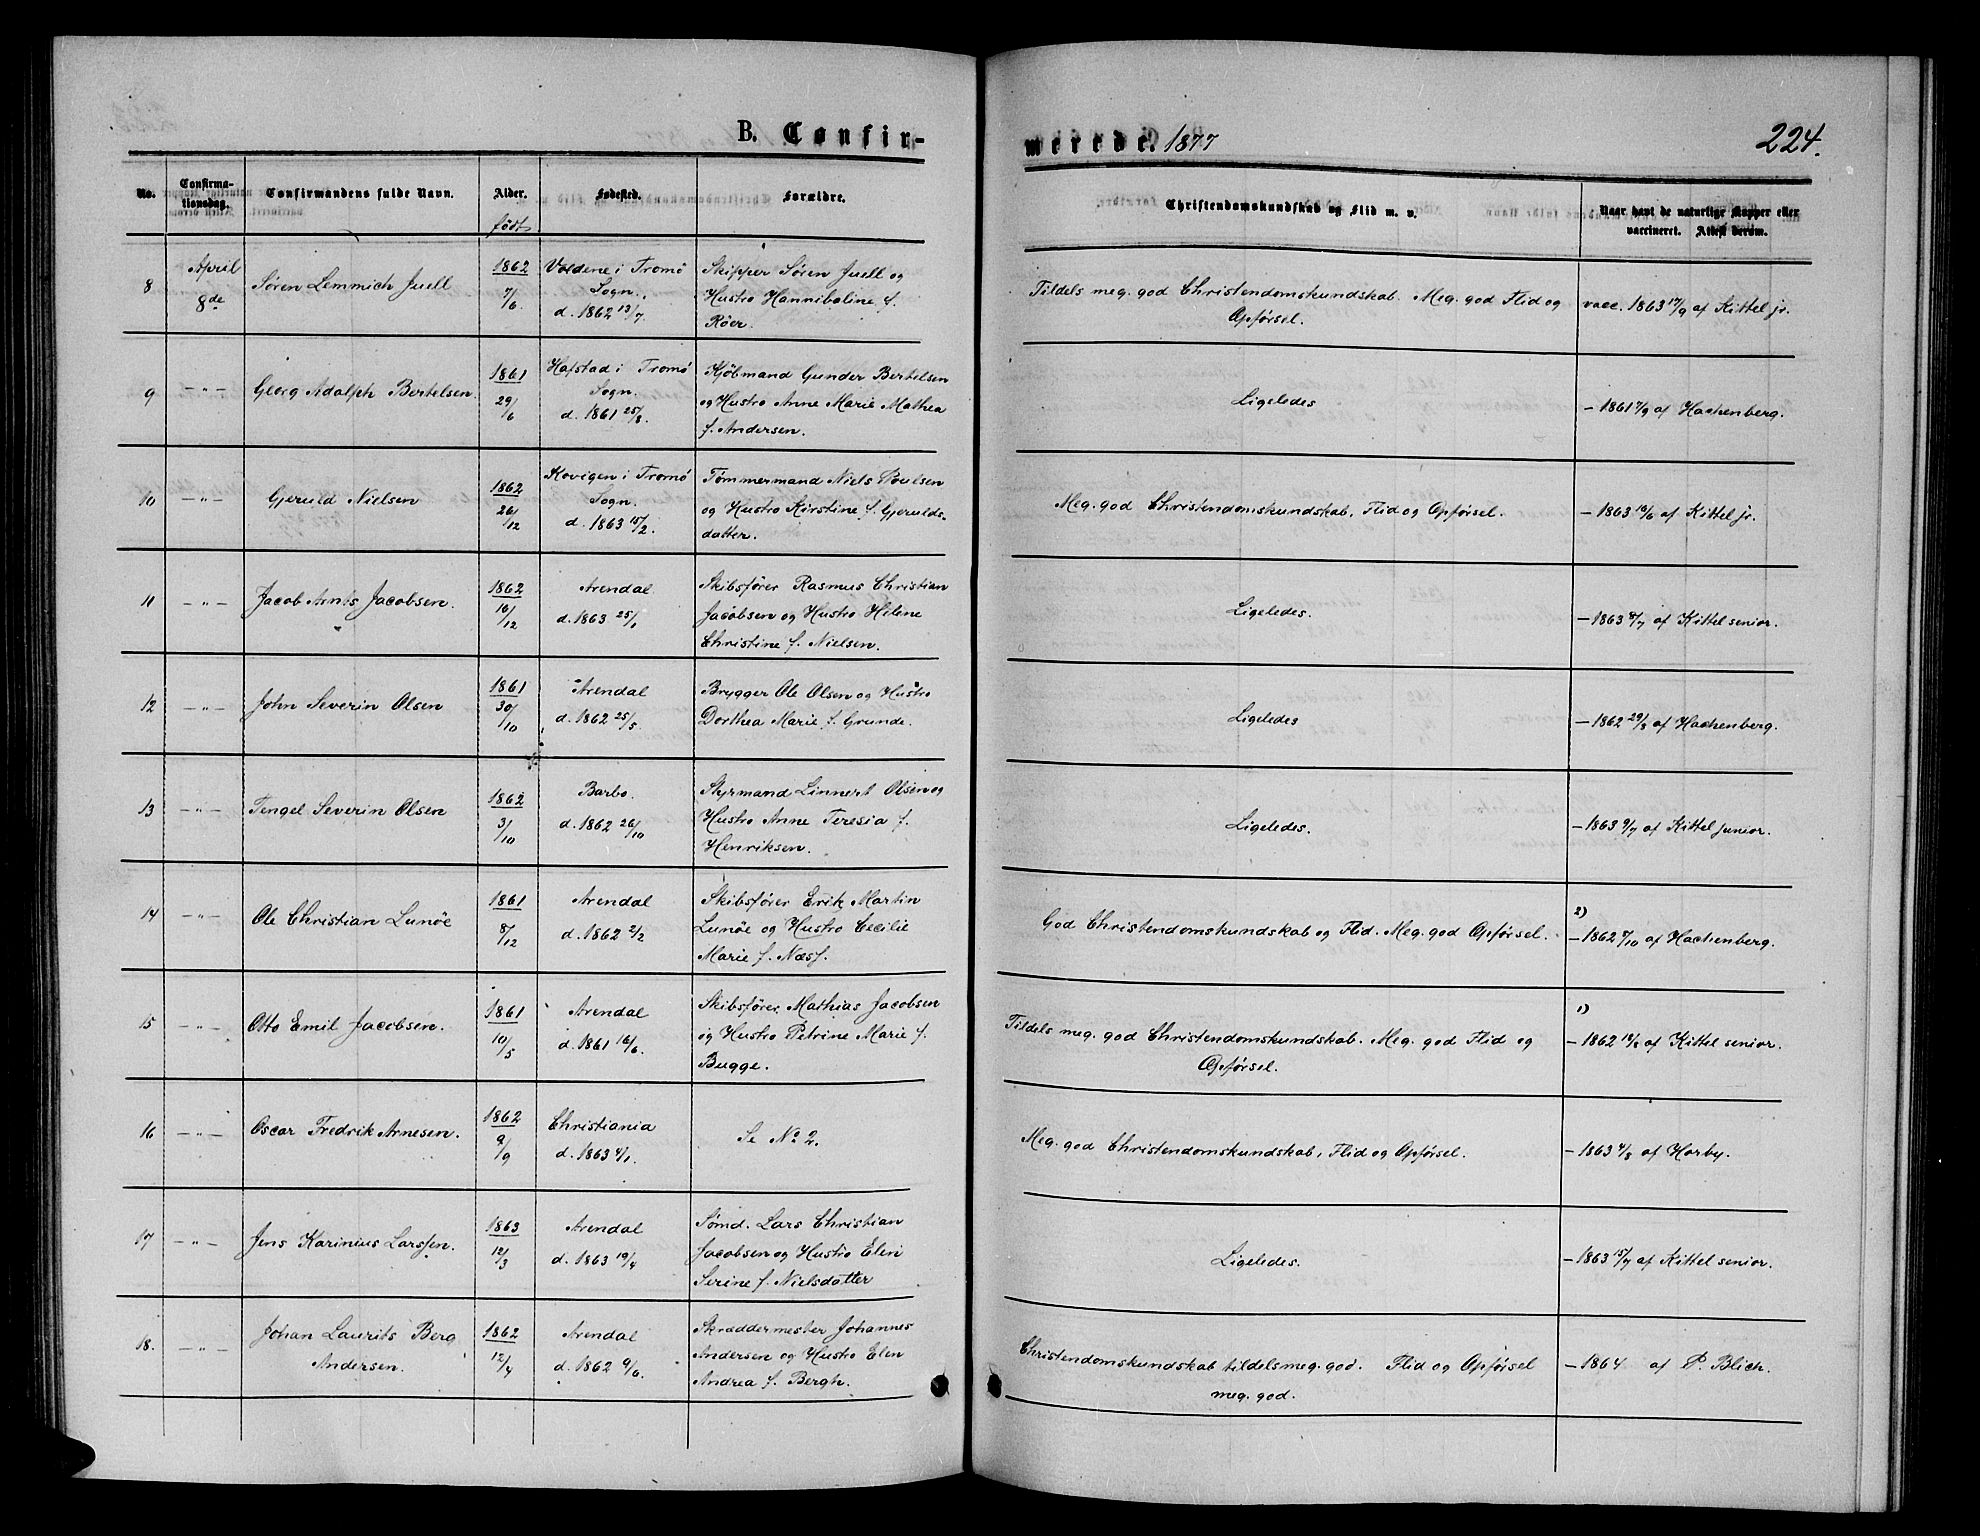 B. Confir-
merede. 1877
224.
No.
Confirma-
tionsdag.
Confirmandens fulde Navn.
Alder.
født
Fødested.
Forældre.
Christendomskundskab og Flid m. v.
Naar havt de naturlige Kopper eller
vaccineret. Attest derom.
8
April
8de
Søren Lemmich Juell
1862
7/6
Voldene i Tromø
Sogn.
d. 1862 13/7.
Skipper Søren Juell og
Hustro Hannibaline f.
Röer.
Tildels meg. god Christendomskundskab. Meg. god Flid og
Opførsel.
vacc. 1863 17/9 af Kittel jr.
9
— " —
Georg Adolph Bertelsen.
1861
29/6
Hafstad i Tromø
Sogn.
d. 1861 25/8.
Kjöbmand Gunder Bertelsen
og Hustro Anne Marie Mathea
f. Andersen.
Ligeledes
— 1861 7/9 af Hachenberg.
10
— " —
Gjeruld Nielsen
1862
26/12
Kovigen i Tromø
Sogn.
d. 1863 15/2.
Tømmermand Niels Poulsen
og Hustro Kirstine f. Gjerulds-
datter.
Meg. god Christendomskundskab, Flid og Opførsel.
— 1863 19/6 af Kittel jr.
11
— " —
Jacob Arnts Jacobsen.
1862
16/12
Arendal
d. 1863 25/1
Skibsfører Rasmus Christian
Jacobsen og Hustro Helene
Christine f. Nielsen.
Ligeledes.
— 1863 8/7 af Kittel senior.
12
— " —
John Severin Olsen
1861
30/10
Arendal
d. 1862 25/5.
Brygger Ole Olsen og Hustro
Dorthea Marie f. Grunde.
Ligeledes
— 1862 29/8 af Hachenberg.
13
— " —
Tengel Severin Olsen
1862
3/10
Barbo.
d. 1862 26/10
Styrmand Linnert Olsen og
Hustro Anne Teresia f.
Henriksen.
Ligeledes.
— 1863 9/7 af Kittel junior.
14
— " —
Ole Christian Lunøe
1861
8/12
Arendal
d. 1862 2/2
Skibsfører Erik Martin
Lunøe og Hustro Cecilie
Marie f. Næsf.
God Christendomskundskab og Flid. Meg. god Opførsel.
2)
— 1862 7/10 af Hachenberg.
15
— " —
Otto Emil Jacobsen.
1861
10/5
Arendal
d. 1861 16/6.
Skibsfører Mathias Jacobsen
og Hustro Petrine Marie f.
Bugge.
Tildels meg. god Christendomskundskab. Meg. god Flid og
Opførsel.
1)
— 1862 14/8 af Kittel senior.
16
— " —
Oscar Fredrik Arnesen.
1862
9/9
Christiania
d. 1863 4/1.
Se No 2.
Meg. god Christendomskundskab, Flid og Opførsel.
— 1863 4/8 af Horby.
17
— " —
Jens Karinius Larssen.
1863
12/3
Arendal
d. 1863 19/4
Sømd. Lars Christian
Jacobsen og Hustro Elen
Serine f. Nielsdatter
Ligeledes.
— 1863 15/7 af Kittel senior.
18.
— " —
Johan Laurits Berg
Andersen.
1862
12/4
Arendal
d. 1862 9/6.
Skræddermester Johannes
Andersen og Hustro Elen
Andrea f. Bergh.
Christendomskundskab tildels meg. god. Flid og Opførsel
meg. god.
— 1864 af P. Blich.